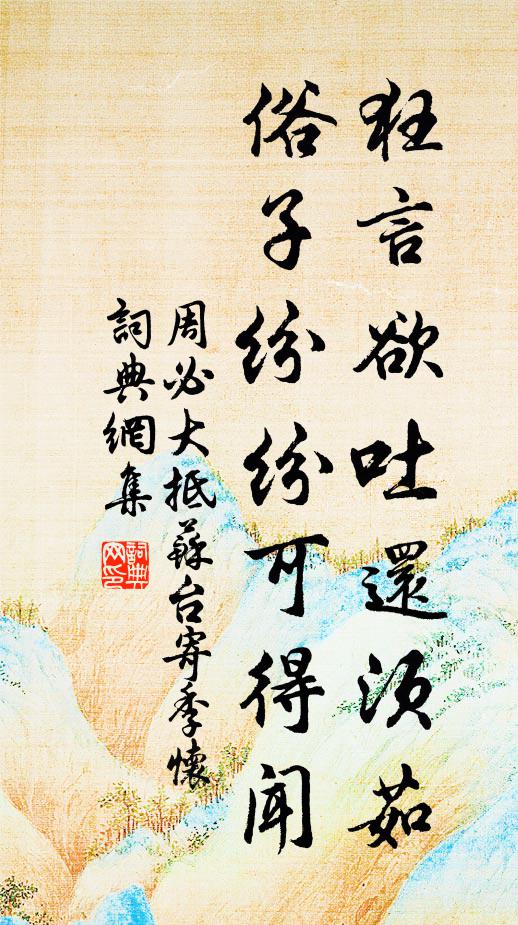 狂言欲吐還須茹
俗子紛紛可得聞
周必大抵蘇台寄季懷
詞典網集
詞典
网印